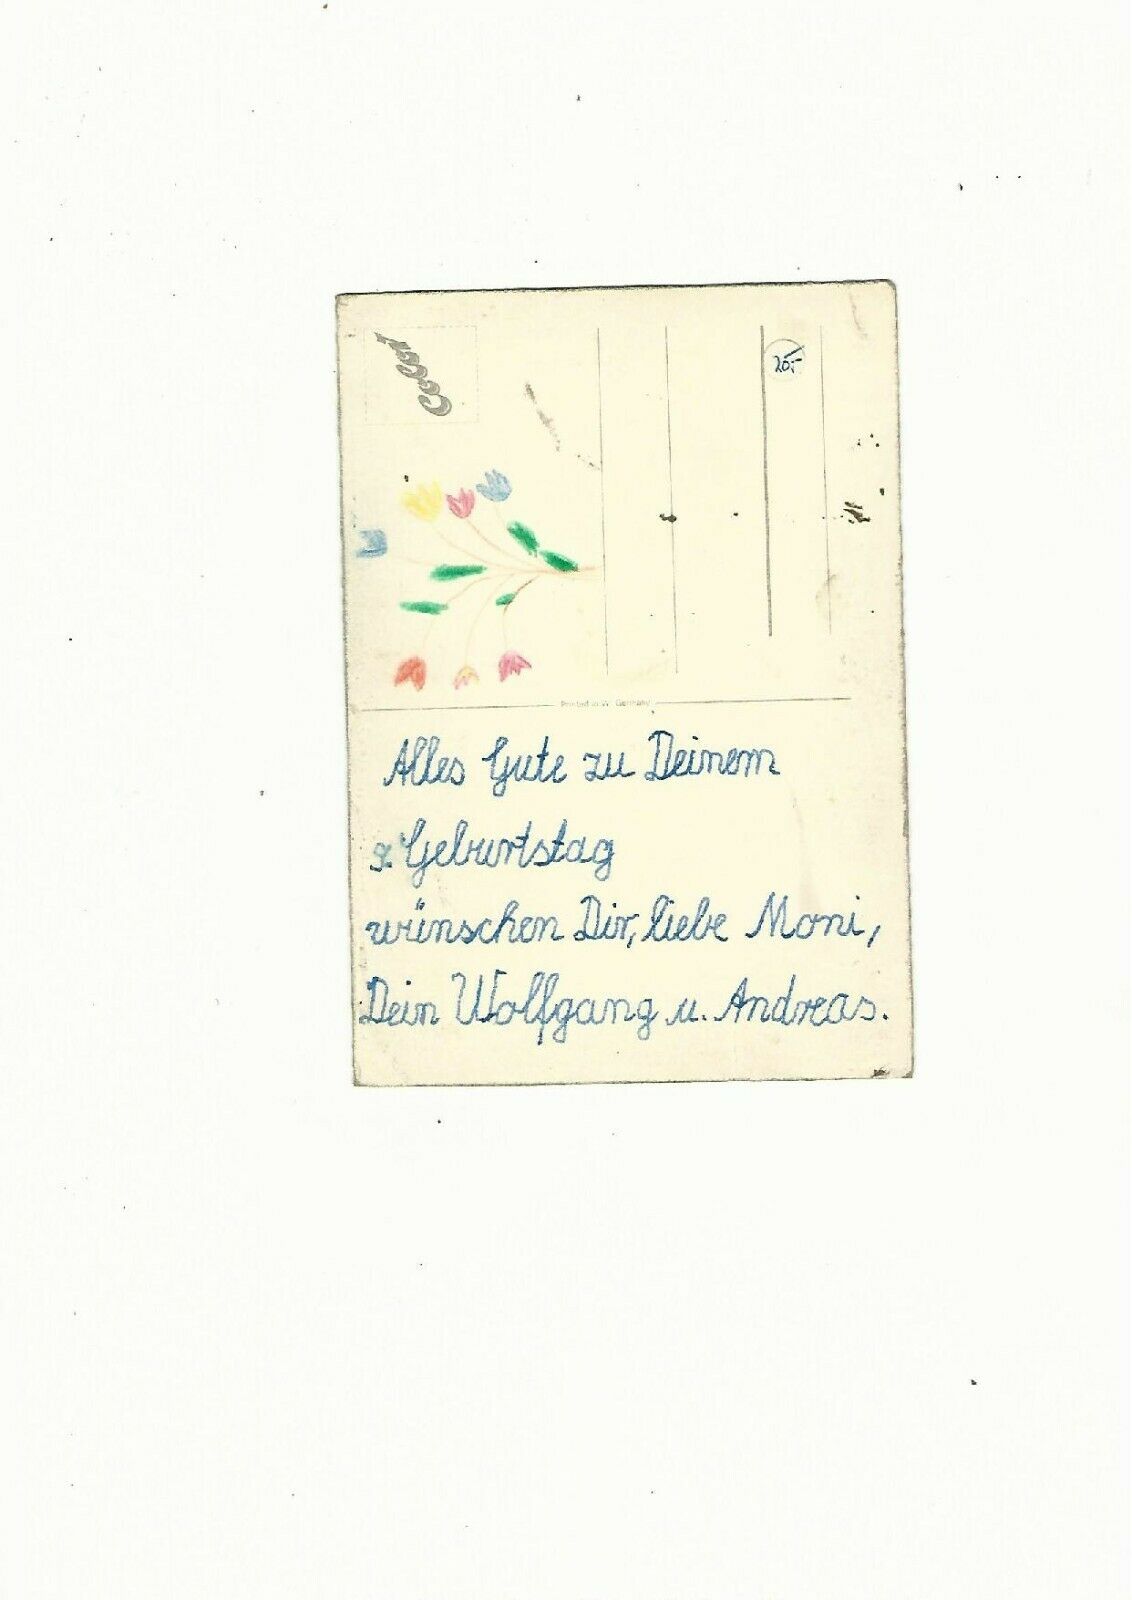 Cecami
20,-
Printed in W. Germany
Alles Gute zu Deinem
Geburtstag
wünschen Dir, liebe Moni,
Dein Wolfgang u. Andreas.